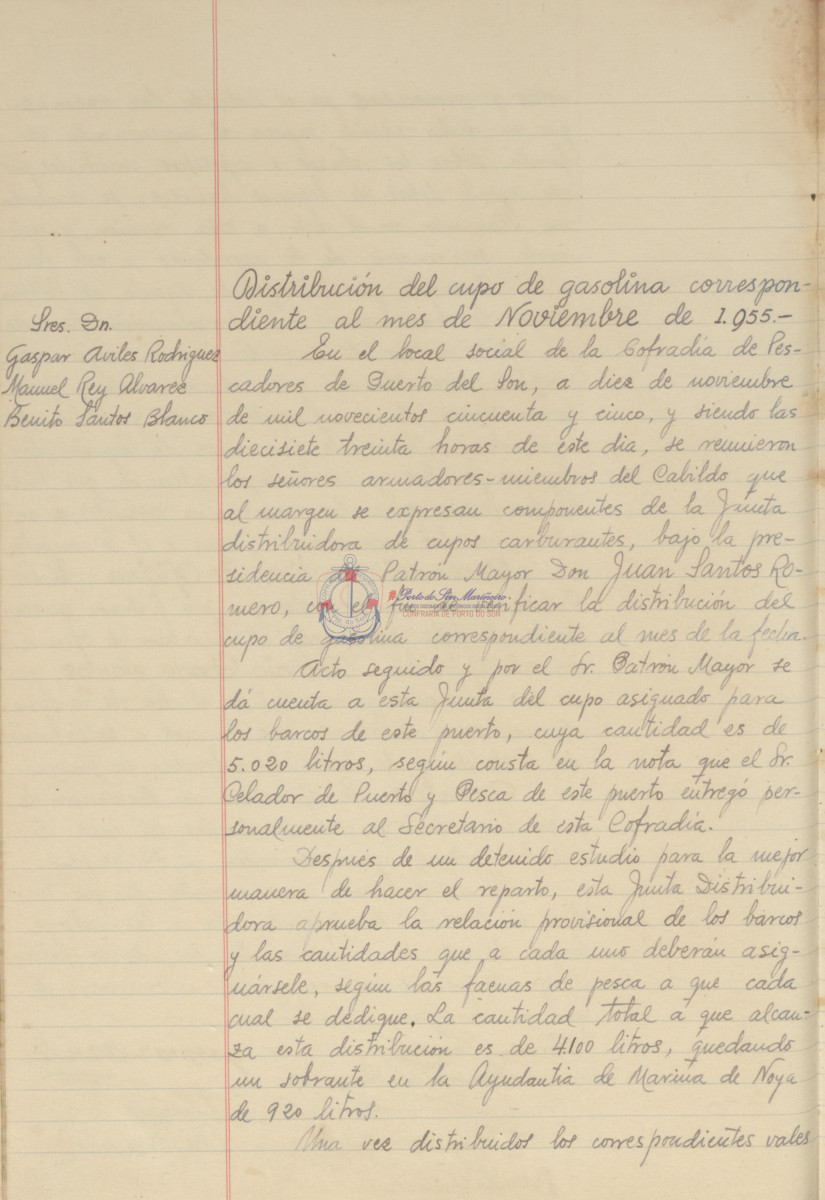 Distribución del cupo de gasolina correspon-
diente al mes de Noviembre de 1.955.-
Sres. Dn.
Gaspar Aviles Rodriguez
Manuel Rey Alvarez
Benito Santos Blanco
En el local social de la Cofradía de Pes-
cadores de Puerto del Son, a diez de noviembre
de mil novecientos cincuenta y cinco, y siendo las
diecisiete treinta horas de este dia, se reunieron
los señores armadores-miembros del Cabildo que
al margen se expresan componentes de la Junta
distribuidora de cupos carburantes, bajo la pre-
sidencia del Patrón Mayor Don Juan Santos Ro-
mero, con el fin de verificar la distribución del
cupo de gasolina correspondiente al mes de la fecha.
Porto do Son Mariñeiro
CONFRARÍA DE PORTO DO SON
Acto seguido y por el Sr. Patrón Mayor se
dá cuenta a esta Junta del cupo asignado para
los barcos de este puerto, cuya cantidad es de
5.020 litros, según consta en la nota que el Sr.
Celador de Puerto y Pesca de este puerto entregó per-
sonalmente al Secretario de esta Cofradía.
Después de un detenido estudio para la mejor
manera de hacer el reparto, esta Junta Distribui-
dora aprueba la relación provisional de los barcos
y las cantidades que a cada uno deberán asig-
nársele, según las faenas de pesca a que cada
cual se dedique. La cantidad total a que alcan-
za esta distribución es de 4100 litros, quedando
un sobrante en la Ayudantía de Marina de Noya
de 920 litros.
Una vez distribuidos los correspondientes vales